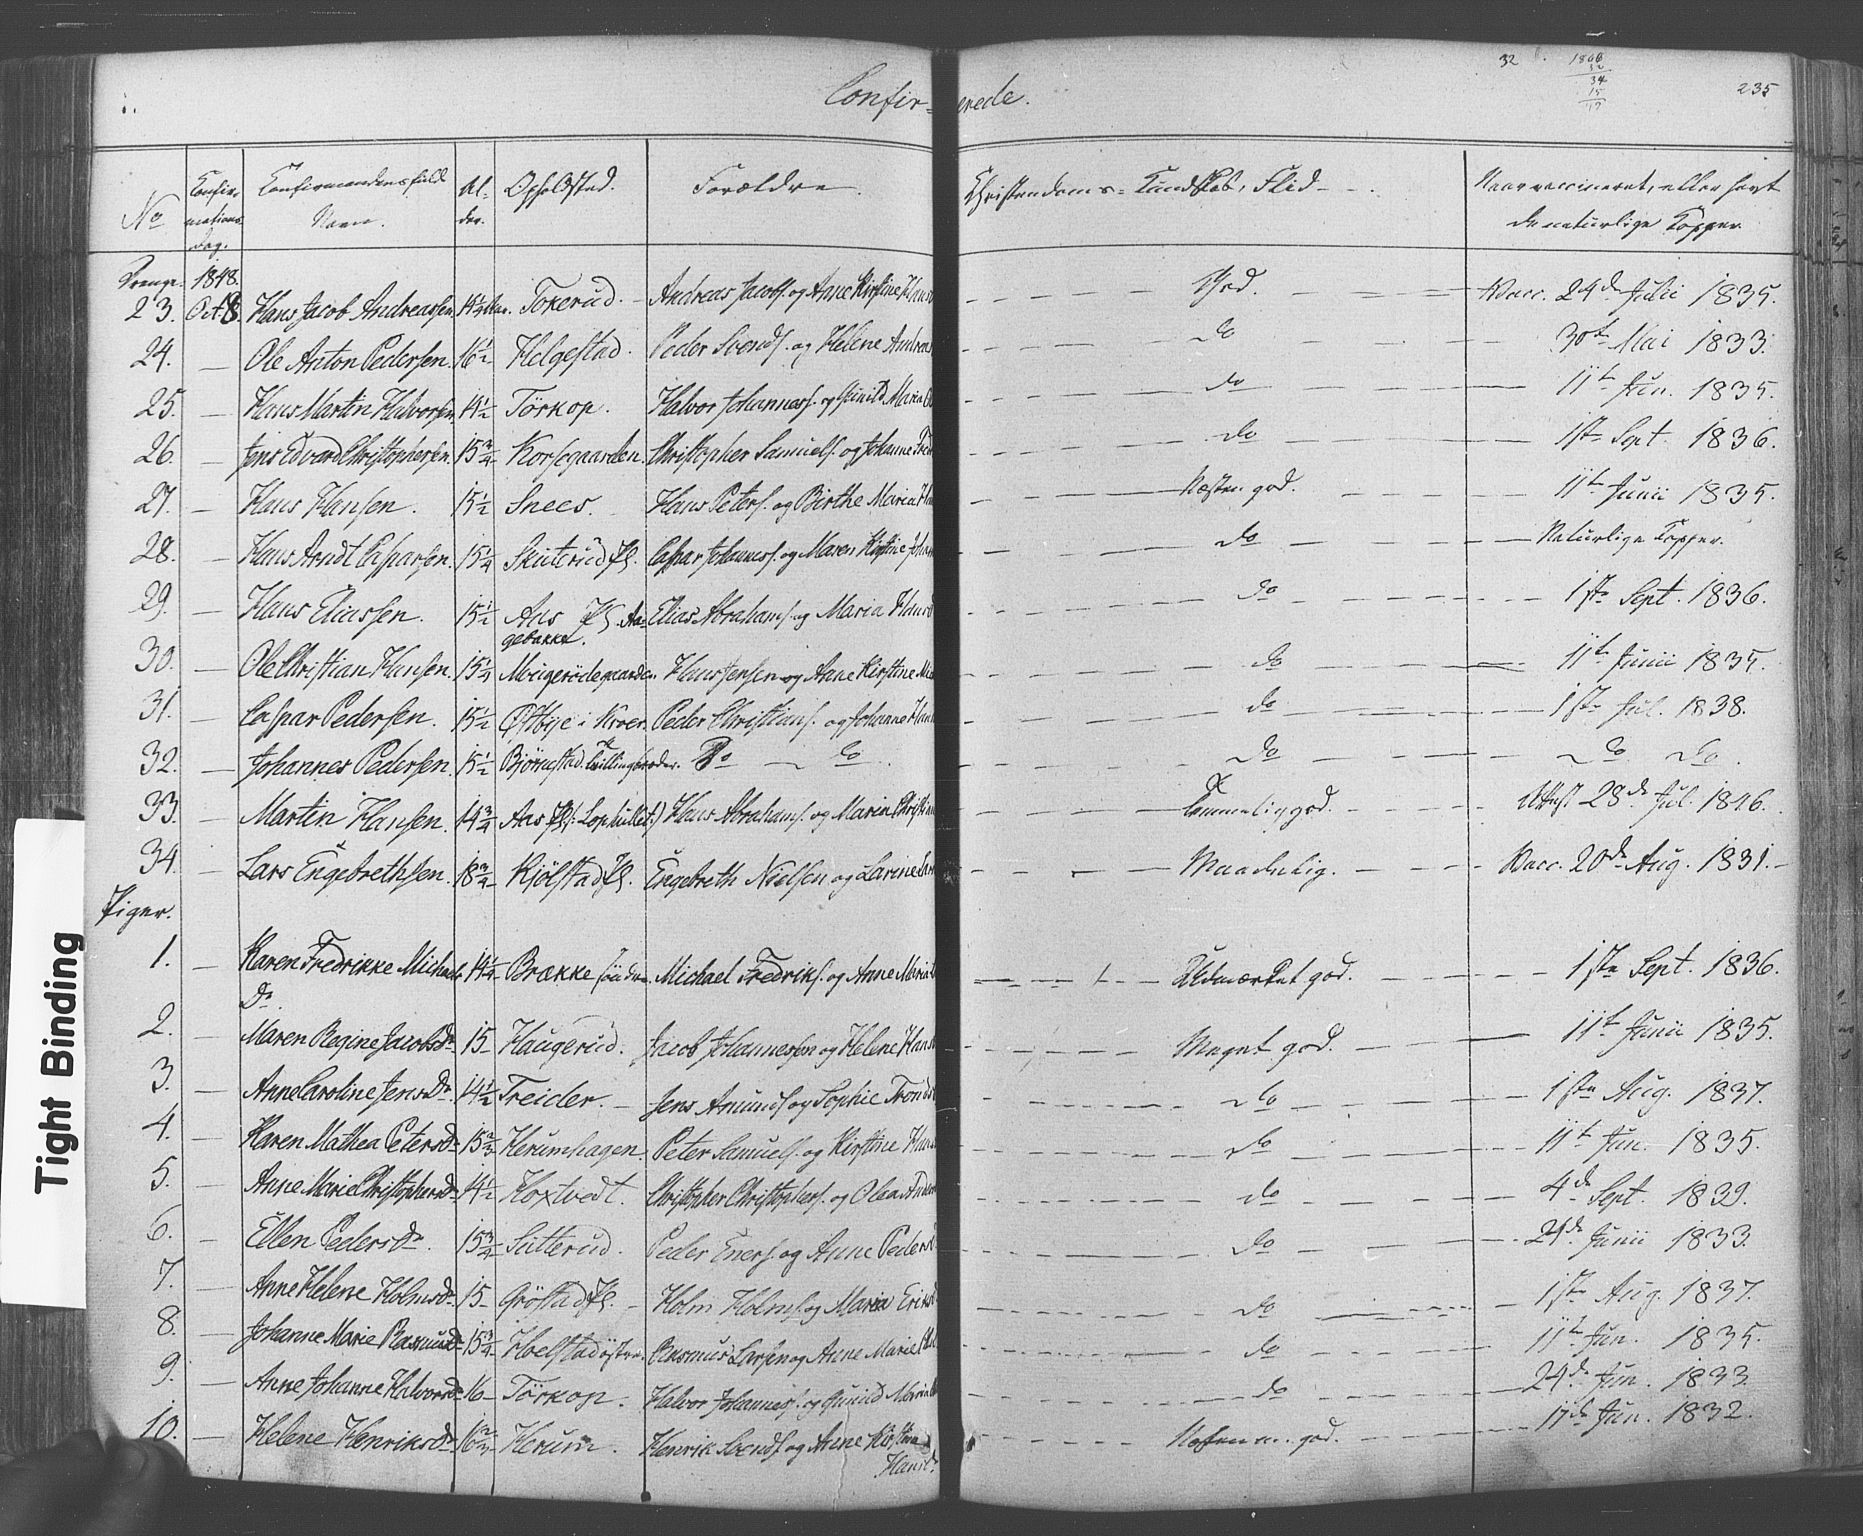 32 1866
32
34
15
19
235
Confir= erede.
No
Confir-
mations
Dag.
Confirmandens fulde
Navn.
Al-
der.
Opholdsted.
Forældre.
Christendoms= Kundskab, Flid
Naar vaccineret, eller havt
de naturlige Kopper.
Drenge. 1848.
23. Oct 8. Hans Jacob Andreassen 14 1/2 Aar. Tokerud. Andreas Jacobs. og Anne Kirstine God. Vacc. 24de Julii 1835.
24. — Ole Anton Pedersen. 16 1/2 Helgestad. Peder Svends. og Helene Andrea do 30te Mai 1833.
25. — Hans Martin Halvorsen 14 1/2 Törkop. Halvor Johanness. og Gunild Maria do 11te Jun. 1835.
26. — Jens Edvard Christophersen. 15 3/4 Korsegaarden. Christopher Samuels. og Johanne Fred do 1ste Sept. 1836.
27. — Hans Hansen. 15 1/2 Snees. Hans Peters. og Birthe Maria Næsten god. 11te Junii 1835.
28. — Hans Arndt Casparsen. 15 1/4 Skuterud Pl. Caspar Johanness. og Maren Kirstine Johan do Naturlige Kopper.
29. — Hans Eliassen. 15 1/2 Aas Pl. Aa- Elias Abrahams. og Maria Hansd do 1ste Sept. 1836.
gebakke.
30. — Ole Christian Hansen. 15 1/4 Mougerödegaarden. Hans Jensen og Anne Kirstine do 11te Junii 1835.
31. — Caspar Pedersen. 15 1/2 Østbye i Kroer. Peder Christians. og Johanne Han do 1ste Jul. 1838.
32. — Johannes Pedersen. 15 1/2 Björnstad. Do do do do do.
33. — Martin Hansen. 14 3/4 Aas Pl. Hans Abrahams. og Maria Christin Temmelig god. Attest 28de Jul. 1846.
34. — Lars Engebrethsen. 18 3/4 Kjölstad Pl. Engebreth Nielsen og Larine Lar Maadelig. Vacc. 20de Aug. 1831.
Piger.
1. — Karen Fredrikke Michaels 14 1/4 Brække söndre. Michael Fredriks. og Anne Maria Udmærket god. 1ste Sept. 1836.
Dr.
2. — Maren Regine Jacobsdr 15 Haugerud. Jacob Johannessen og Helene Hans Meget god. 11te Junii 1835.
3. — Anne Caroline Jensdr. 14 1/2 Treider. Jens Amunds. og Sophie Tronds do 1ste Aug. 1837.
4. — Karen Mathea Petersdr 15 2/3 Herumhagen. Peter Samuels. og Kirstine Hans do 11te Jun. 1835.
5. — Anne Marie Christophersdr 14 1/2 Hoxtvedt. Christopher Christophers. og Olea Ander do 4de Sept. 1839.
6. — Ellen Pedersdr. 15 3/4 Sitterud. Peder Eners. og Anne Pedersd do 24de Junii 1833.
7. — Anne Helene Holmsdr 15 Gröstad Pl. Holm Holms. og Maria Eriksd do 1ste Aug. 1837.
8. — Johanne Marie Rasmusdr 15 3/4 Holstad östre. Rasmus Larsen og Anne Marie do 11te Jun. 1835.
9. — Anne Johanne Halvorsdr 16 Törkop. Halvor Johanness. og Gunild Maria do 24de Jun. 1833.
10. — Helene Henriksdr 16 2/3 Herum. Henrik Svends. og Anne Kirstine Næsten m. god. 17de Jun. 1832.
Hansd.
Tight Binding